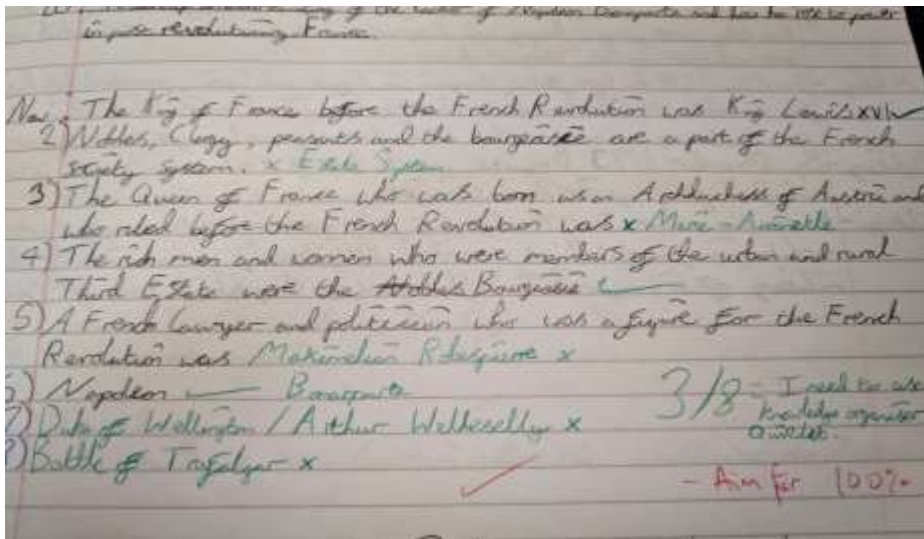 of the of Napoleon Bonaparte and how he rose to power
in post revolutionary France.
Now. The King of France before the French Revolution was King Lewis XVI ✓
2) Nobles, Clergy, peasants and the bourgeoisie are a part of the French
society system. x Estate System
3) The Queen of France who was born as an Archduchess of Austria and
who ruled before the French Revolution was x Marie-Antoinette
4) The rich men and women who were members of the urban and rural
Third Estate were the Nobles Bourgeoisie ✓
5) A French lawyer and politician who was a figure for the French
Revolution was Maximilien Robespierre x
6) Napoleon ✓ Bonaparte
7) Duke of Wellington / Arthur Wellesely x
8) Battle of Trafalgar x
3/8 - I need to use
knowledge organiser
Quizlet.
- Aim for 100%